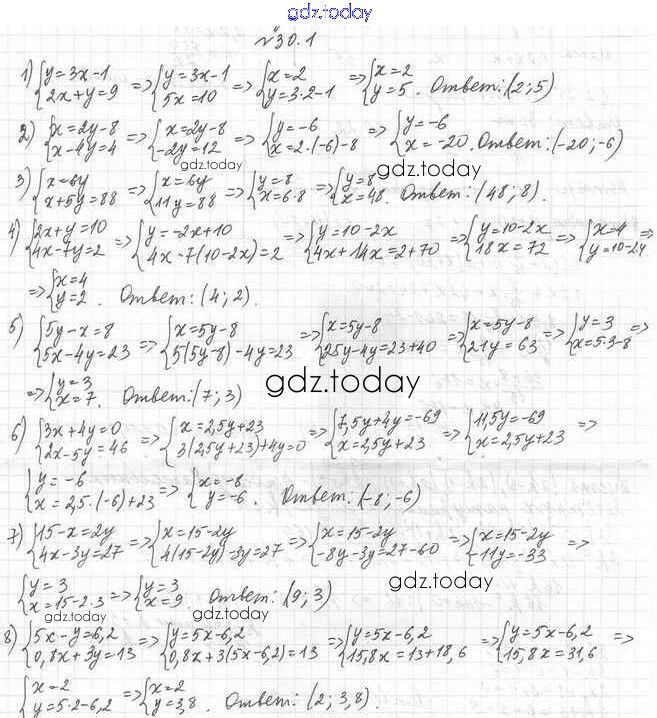 gdz.today
№30.1
1) {y=3x-1 {2x+y=9 => {y=3x-1 {5x=10 => {x=2 {y=3·2-1 => {x=2 {y=5. Ответ: (2;5)
2) {x=2y-8 {x-4y=4 => {x=2y-8 {-2y=12 => {y=-6 {x=2·(-6)-8 => {y=-6 {x=-20. Ответ: (-20;-6)
gdz.today
3) {x=6y {x+5y=88 => {x=6y {11y=88 => {y=8 {x=6·8 => {y=8 {x=48. Ответ: (48;8).
gdz.today
4) {2x+y=10 {4x-7y=2 => {y=-2x+10 {4x-7(10-2x)=2 => {y=10-2x {4x+14x=2+70 => {y=10-2x {18x=72 => {x=4 {y=10-24 =>
=> {x=4 {y=2. Ответ: (4;2).
5) {5y-x=8 {5x-4y=23 => {x=5y-8 {5(5y-8)-4y=23 => {x=5y-8 {25y-4y=23+40 => {x=5y-8 {21y=63 => {y=3 {x=5·3-8 =>
=> {y=3 {x=7. Ответ: (7;3)
gdz.today
6) {3x+4y=0 {2x-5y=46 => {x=2,5y+23 {3(2,5y+23)+4y=0 => {7,5y+4y=-69 {x=2,5y+23 => {11,5y=-69 {x=2,5y+23 =>
{y=-6 {x=2,5·(-6)+23 => {x=-8 {y=-6. Ответ: (-8;-6)
7) {15-x=2y {4x-3y=27 => {x=15-2y {4(15-2y)-3y=27 => {x=15-2y {-8y-3y=27-60 => {x=15-2y {-11y=-33 =>
gdz.today
{y=3 {x=15-2·3 => {y=3 {x=9. Ответ: (9;3)
gdz.today gdz.today
8) {5x-y=6,2 {0,8x+3y=13 => {y=5x-6,2 {0,8x+3(5x-6,2)=13 => {y=5x-6,2 {15,8x=13+18,6 => {y=5x-6,2 {15,8x=31,6 =>
{x=2 {y=5·2-6,2 => {x=2 {y=3,8. Ответ: (2;3,8).
gdz.today